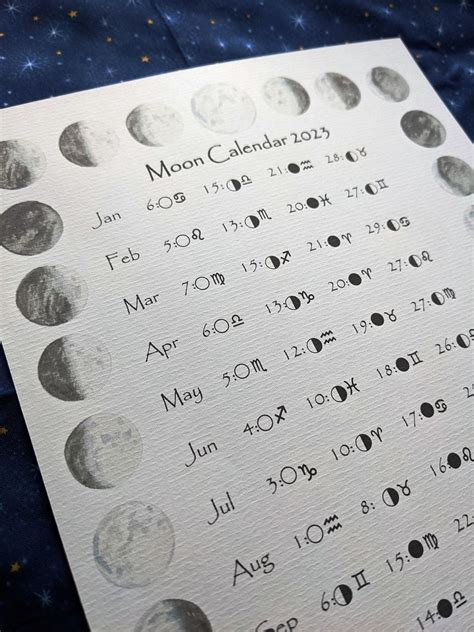 Moon Calendar 2023
Jan 6:○♋ 15:◑♎ 21:●♒ 28:◐♉
Feb 5:○♌ 13:◑♏ 20:●♓ 27:◐♊
Mar 7:○♍ 15:◑♐ 21:●♈ 29:◐♋
Apr 6:○♎ 13:◑♑ 20:●♈ 27:◐♌
May 5:○♏ 12:◑♒ 19:●♉ 27:◐♍
Jun 4:○♐ 10:◑♓ 18:●♊ 26:
Jul 3:○♑ 10:◑♈ 17:●♋
Aug 1:○♒ 8:◑♉ 16:●♌
Sep 6:◑♊ 15:●♍ 22: